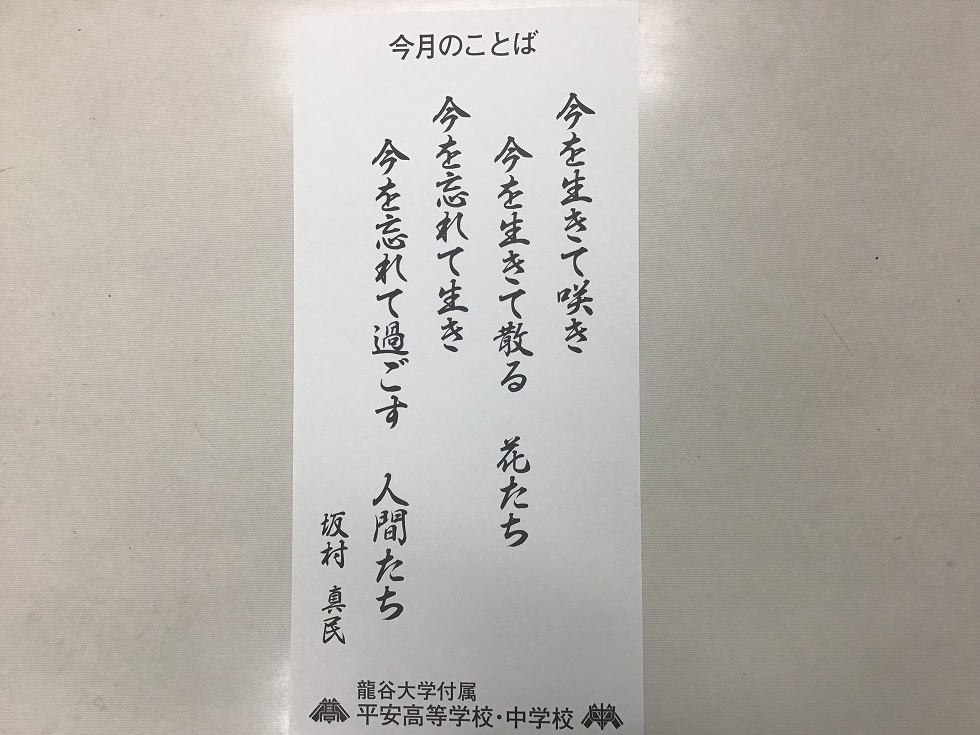 今月のことば
今を生きて咲き
今を生きて散る　花たち
今を忘れて生き
今を忘れて過ごす　人間たち
坂村　真民
龍谷大学付属
平安高等学校・中学校